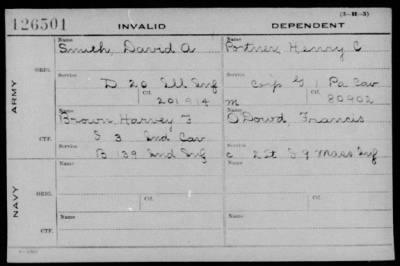 (3-111-3)
126501 INVALID DEPENDENT
Name Name
Smith, David A Portner, Henry C
ORIG. Service Service
D 20 Ill Inf Corp G 1 Pa Cav
Ctf. Ctf.
201914 m 80902
ARMY
Name Name
Brown, Harvey F O'Dowd, Francis
CTF. Service Service
S 3 Ind Cav
B 139 Ind Inf c 2 Lt S 9 Mass Inf
NAVY
ORIG. Name Name
Service Service
CTF. Name Name
Service Service